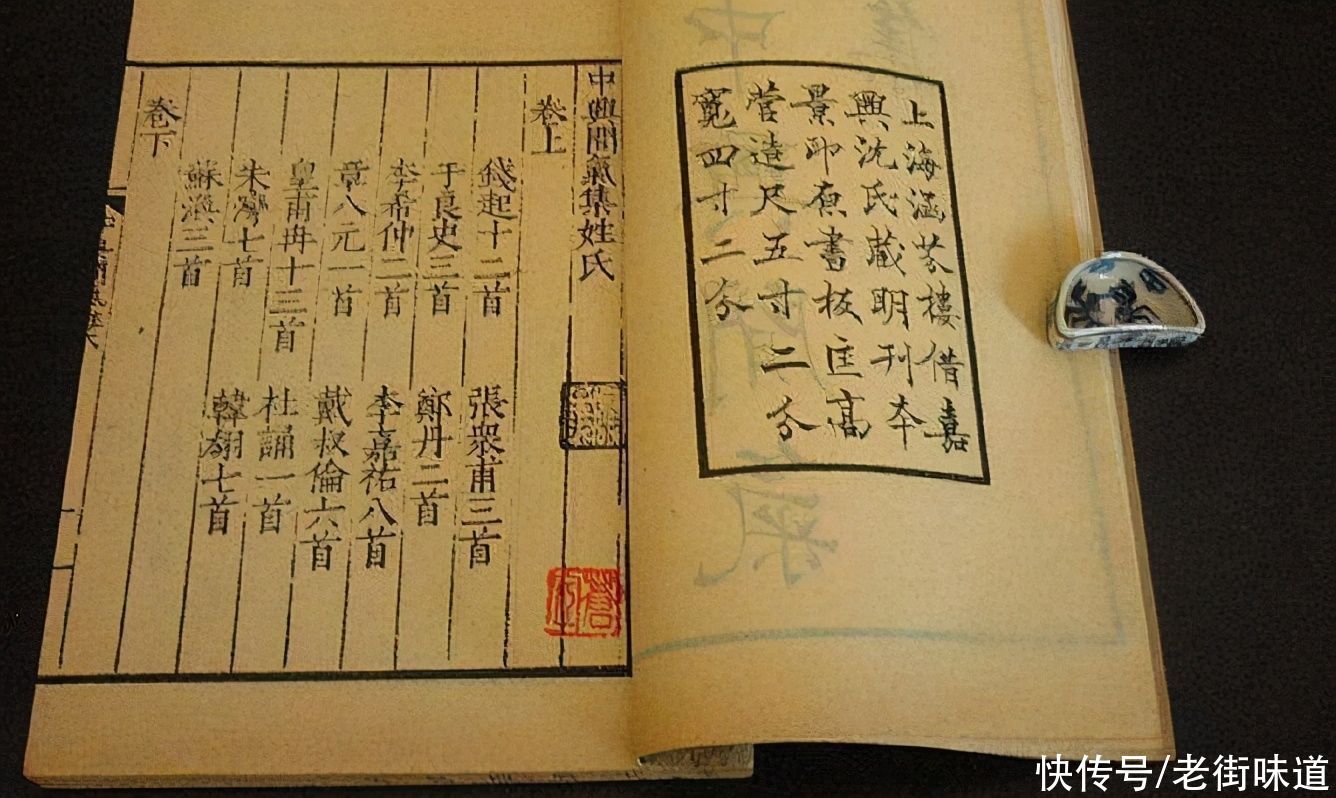 上海涵芬樓借嘉
興沈氏藏明刊本
景印原書板匡高
營造尺五寸二分
寬四寸二分
中興間氣集姓氏
卷上
錢起十二首
張衆甫三首
于良史三首
鄭丹二首
李希仲二首
李嘉祐八首
章八元一首
戴叔倫六首
皇甫冉十三首
杜誦一首
朱灣七首
韓翃七首
蘇渙三首
卷下
中
氣
快传号/老街味道